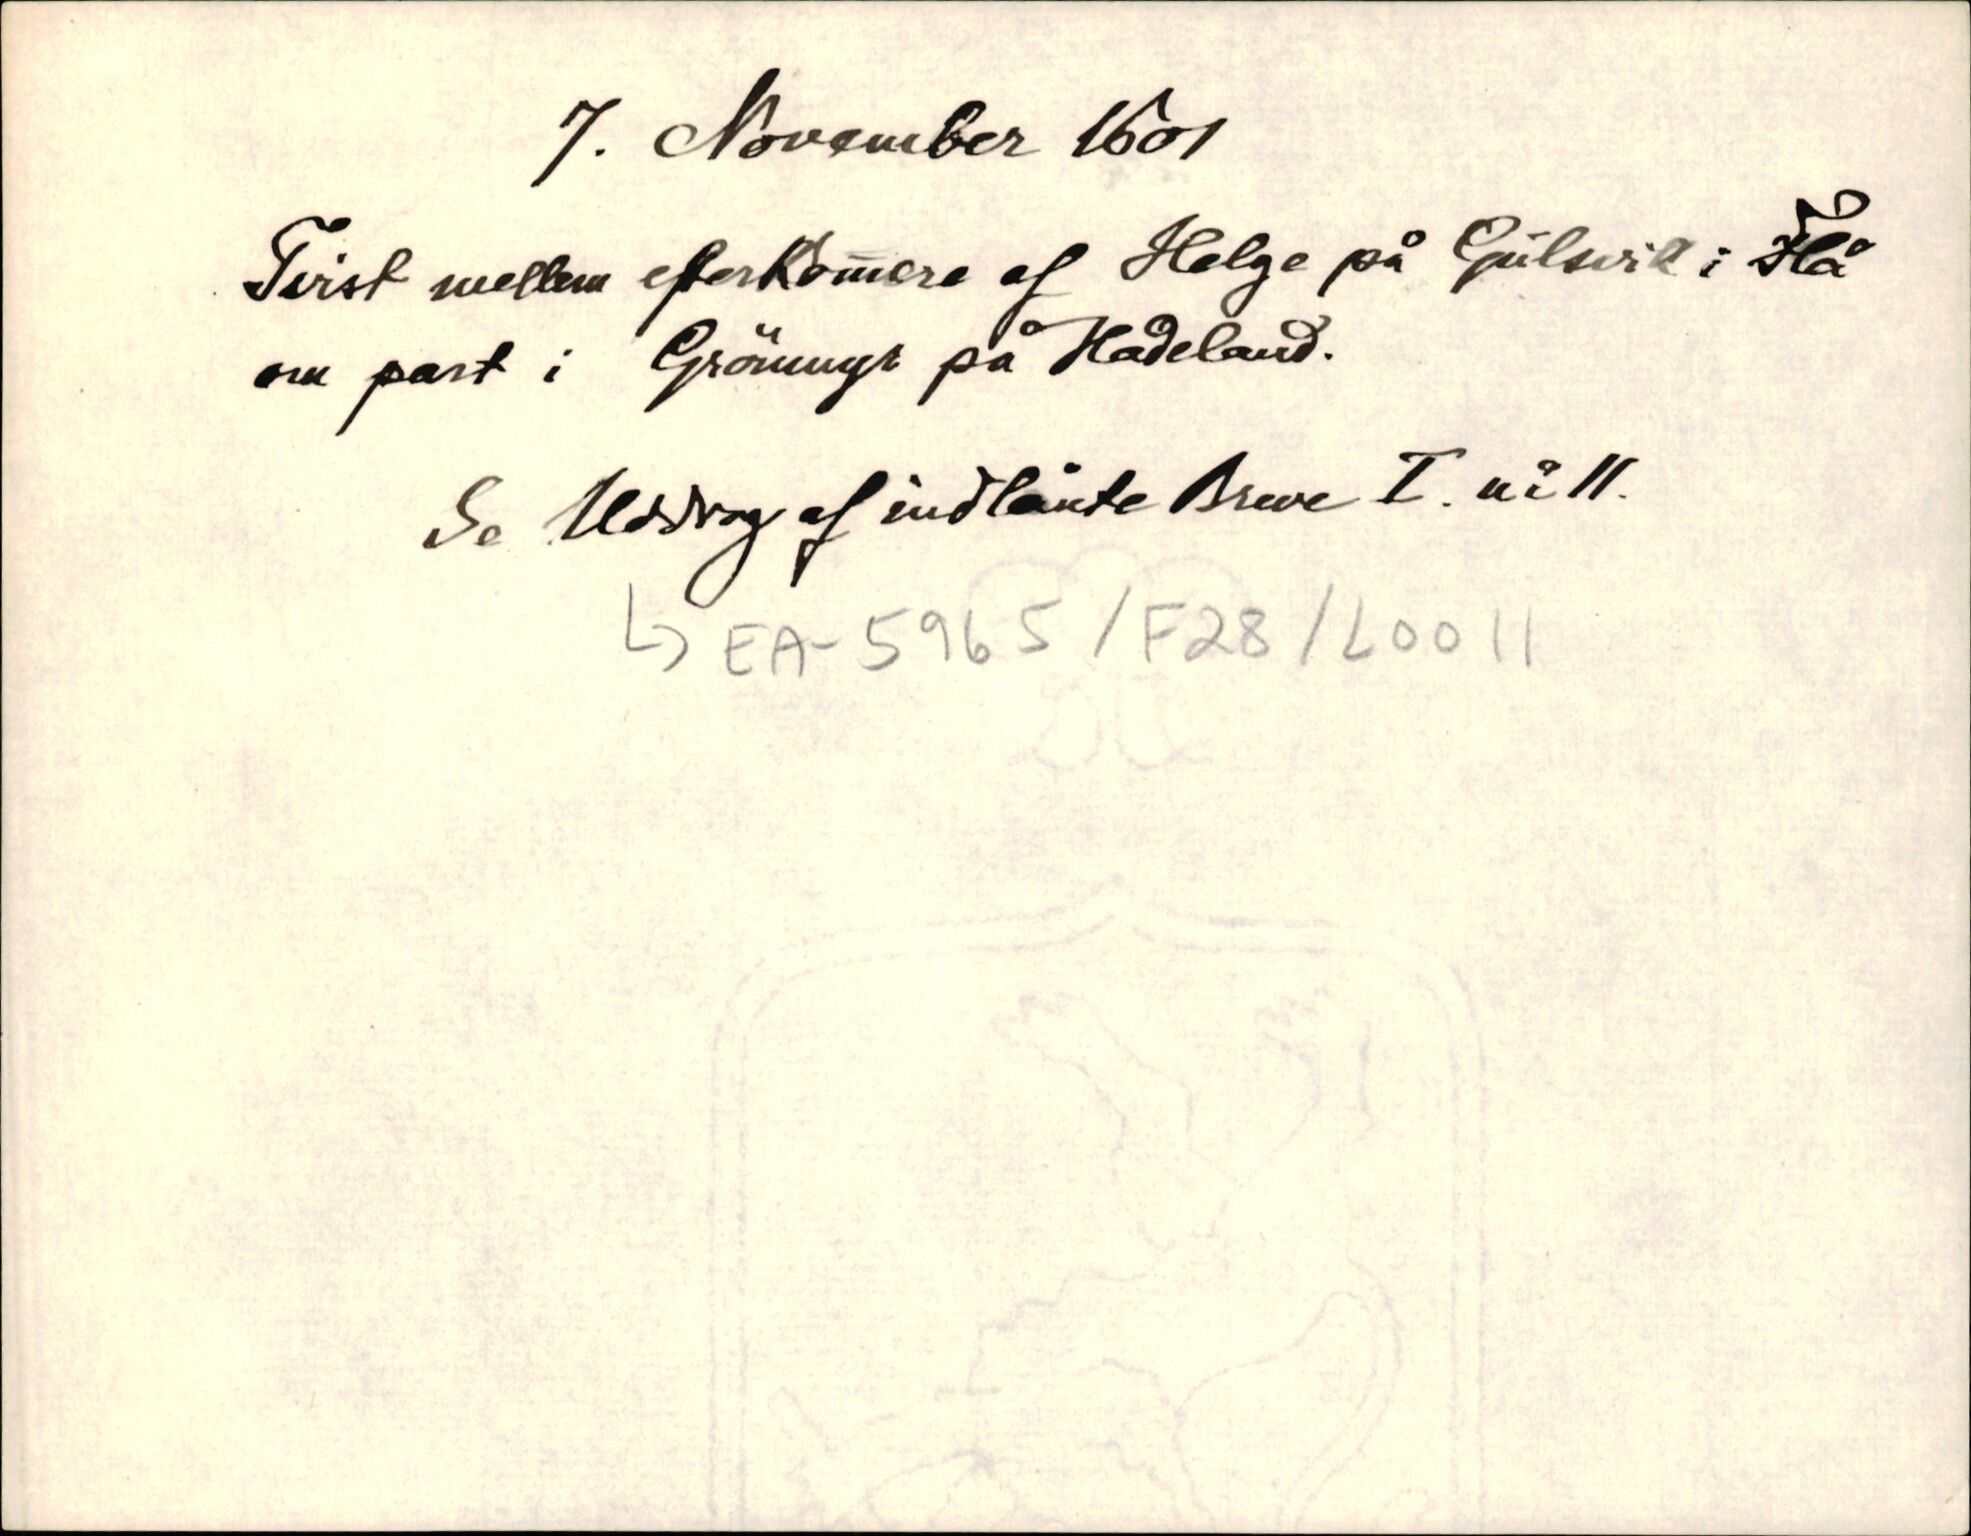 7. November 1601
Tvist mellem efterkom̅ere af Helge på Gulsvik i Flå
om part i på Hadeland.
Se Uddrag af indlånte Breve I. nº 11.
↳ EA-5965/F28/L0011